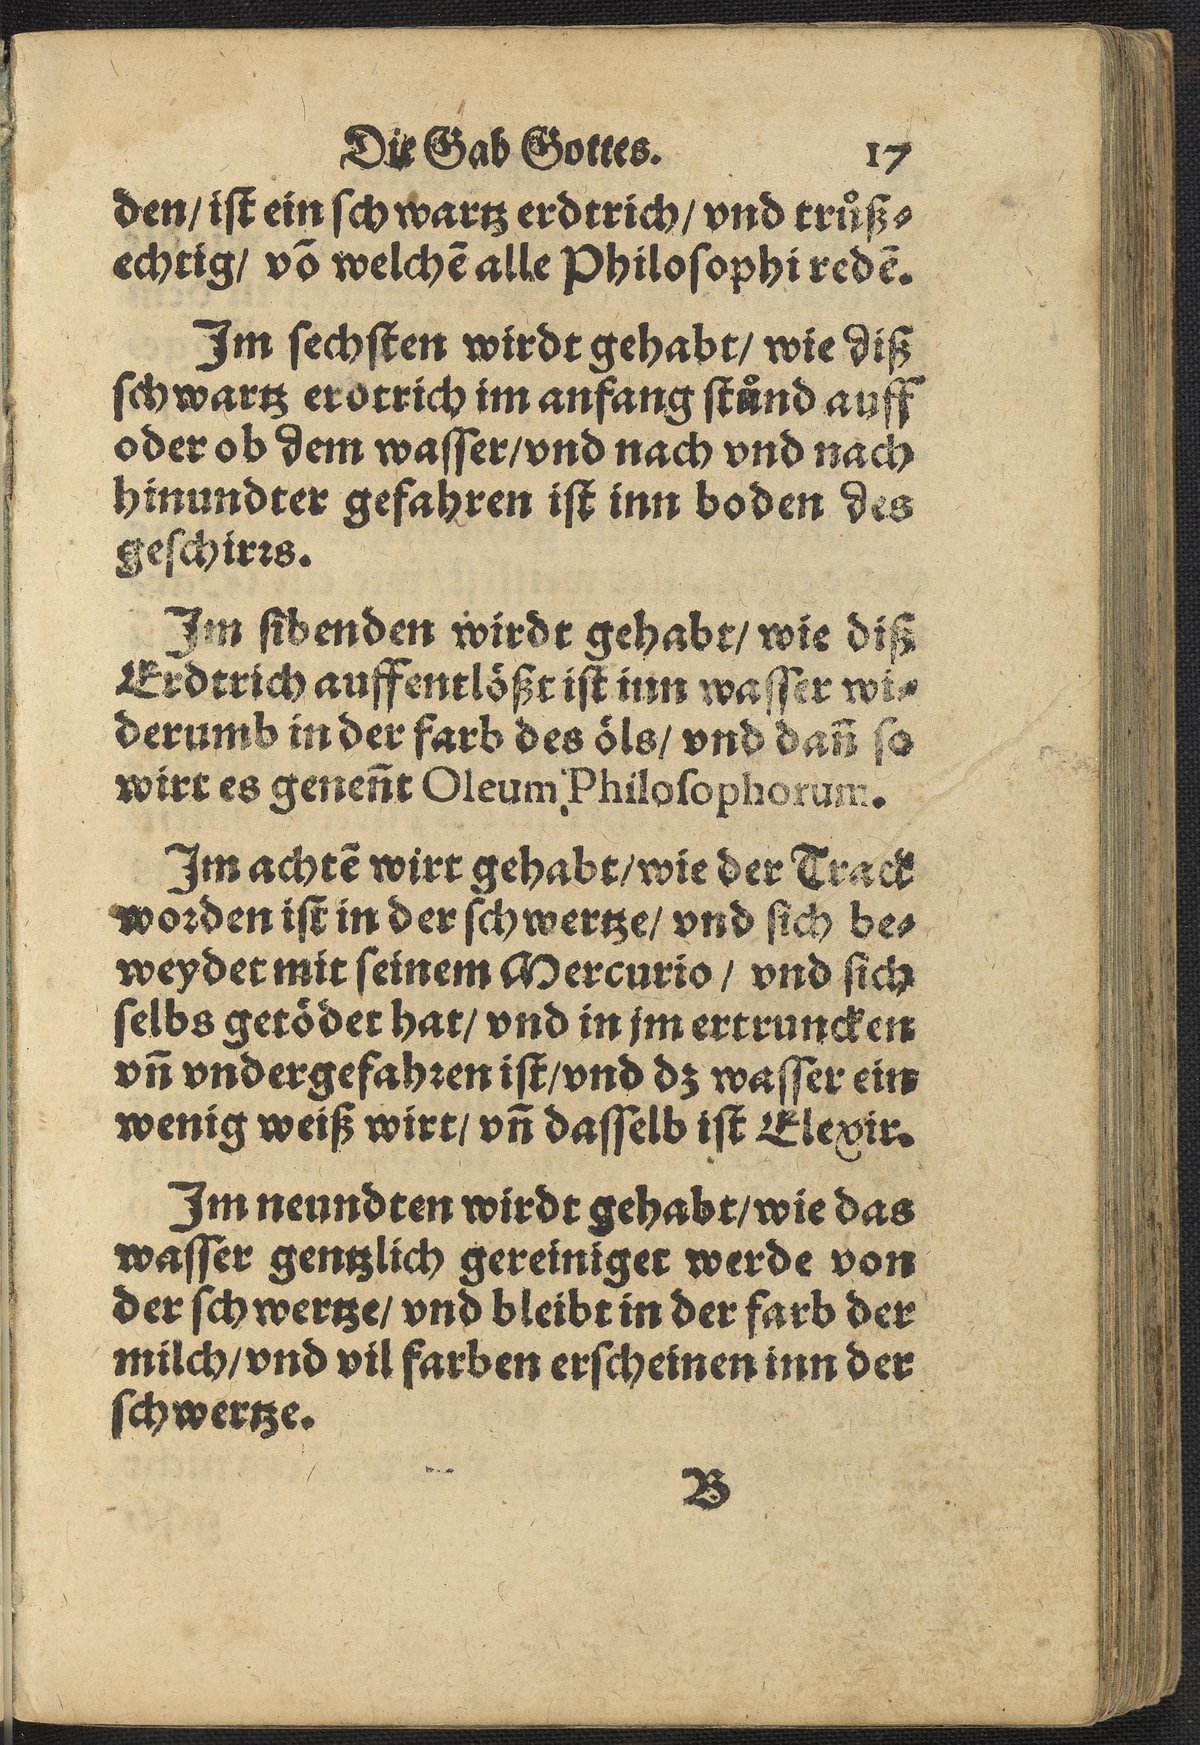 Die Gab Gottes. 17
den/ ist ein schwartz erdtrich/ vnd truͦß⸗
echtig/ võ welchẽ alle Philosophi redẽ.
Im sechsten wirdt gehabt/ wie diß
schwartz erdtrich im anfang stuͦnd auff
oder ob dem wasser/ vnd nach vnd nach
hinundter gefahren ist inn boden des
geschirrs.
Im sibenden wirdt gehabt/ wie diß
Erdtrich auffentlößt ist inn wasser wi⸗
derumb in der farb des öls/ vnd dañ so
wirt es geneñt Oleum Philosophorum.
Im achtẽ wirt gehabt/ wie der Track
worden ist in der schwertze/ vnd sich be⸗
weydet mit seinem Mercurio/ vnd sich
selbs getödet hat/ vnd in jm ertruncken
vñ vndergefahren ist/ vnd dz wasser ein
wenig weiß wirt/ vñ dasselb ist Elexir.
Im neundten wirdt gehabt/ wie das
wasser gentzlich gereiniget werde von
der schwertze/ vnd bleibt in der farb der
milch/ vnd vil farben erscheinen inn der
schwertze.
B